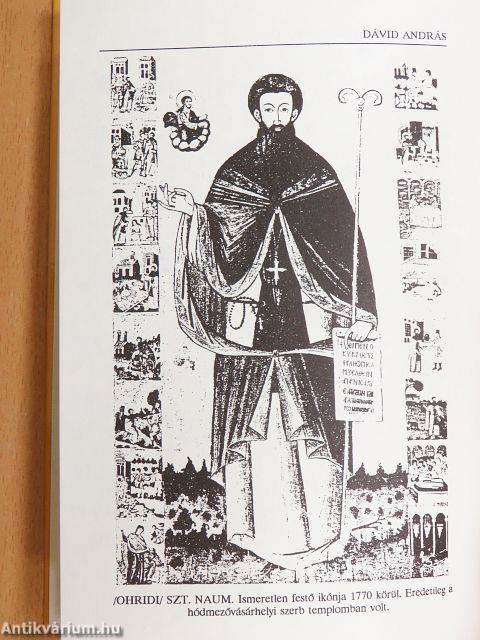 DÁVID ANDRÁS
/OHRIDI/ SZT. NAUM. Ismeretlen festő ikónja 1770 körül. Eredetileg a
hódmezővásárhelyi szerb templomban volt.
Antikvárium.hu